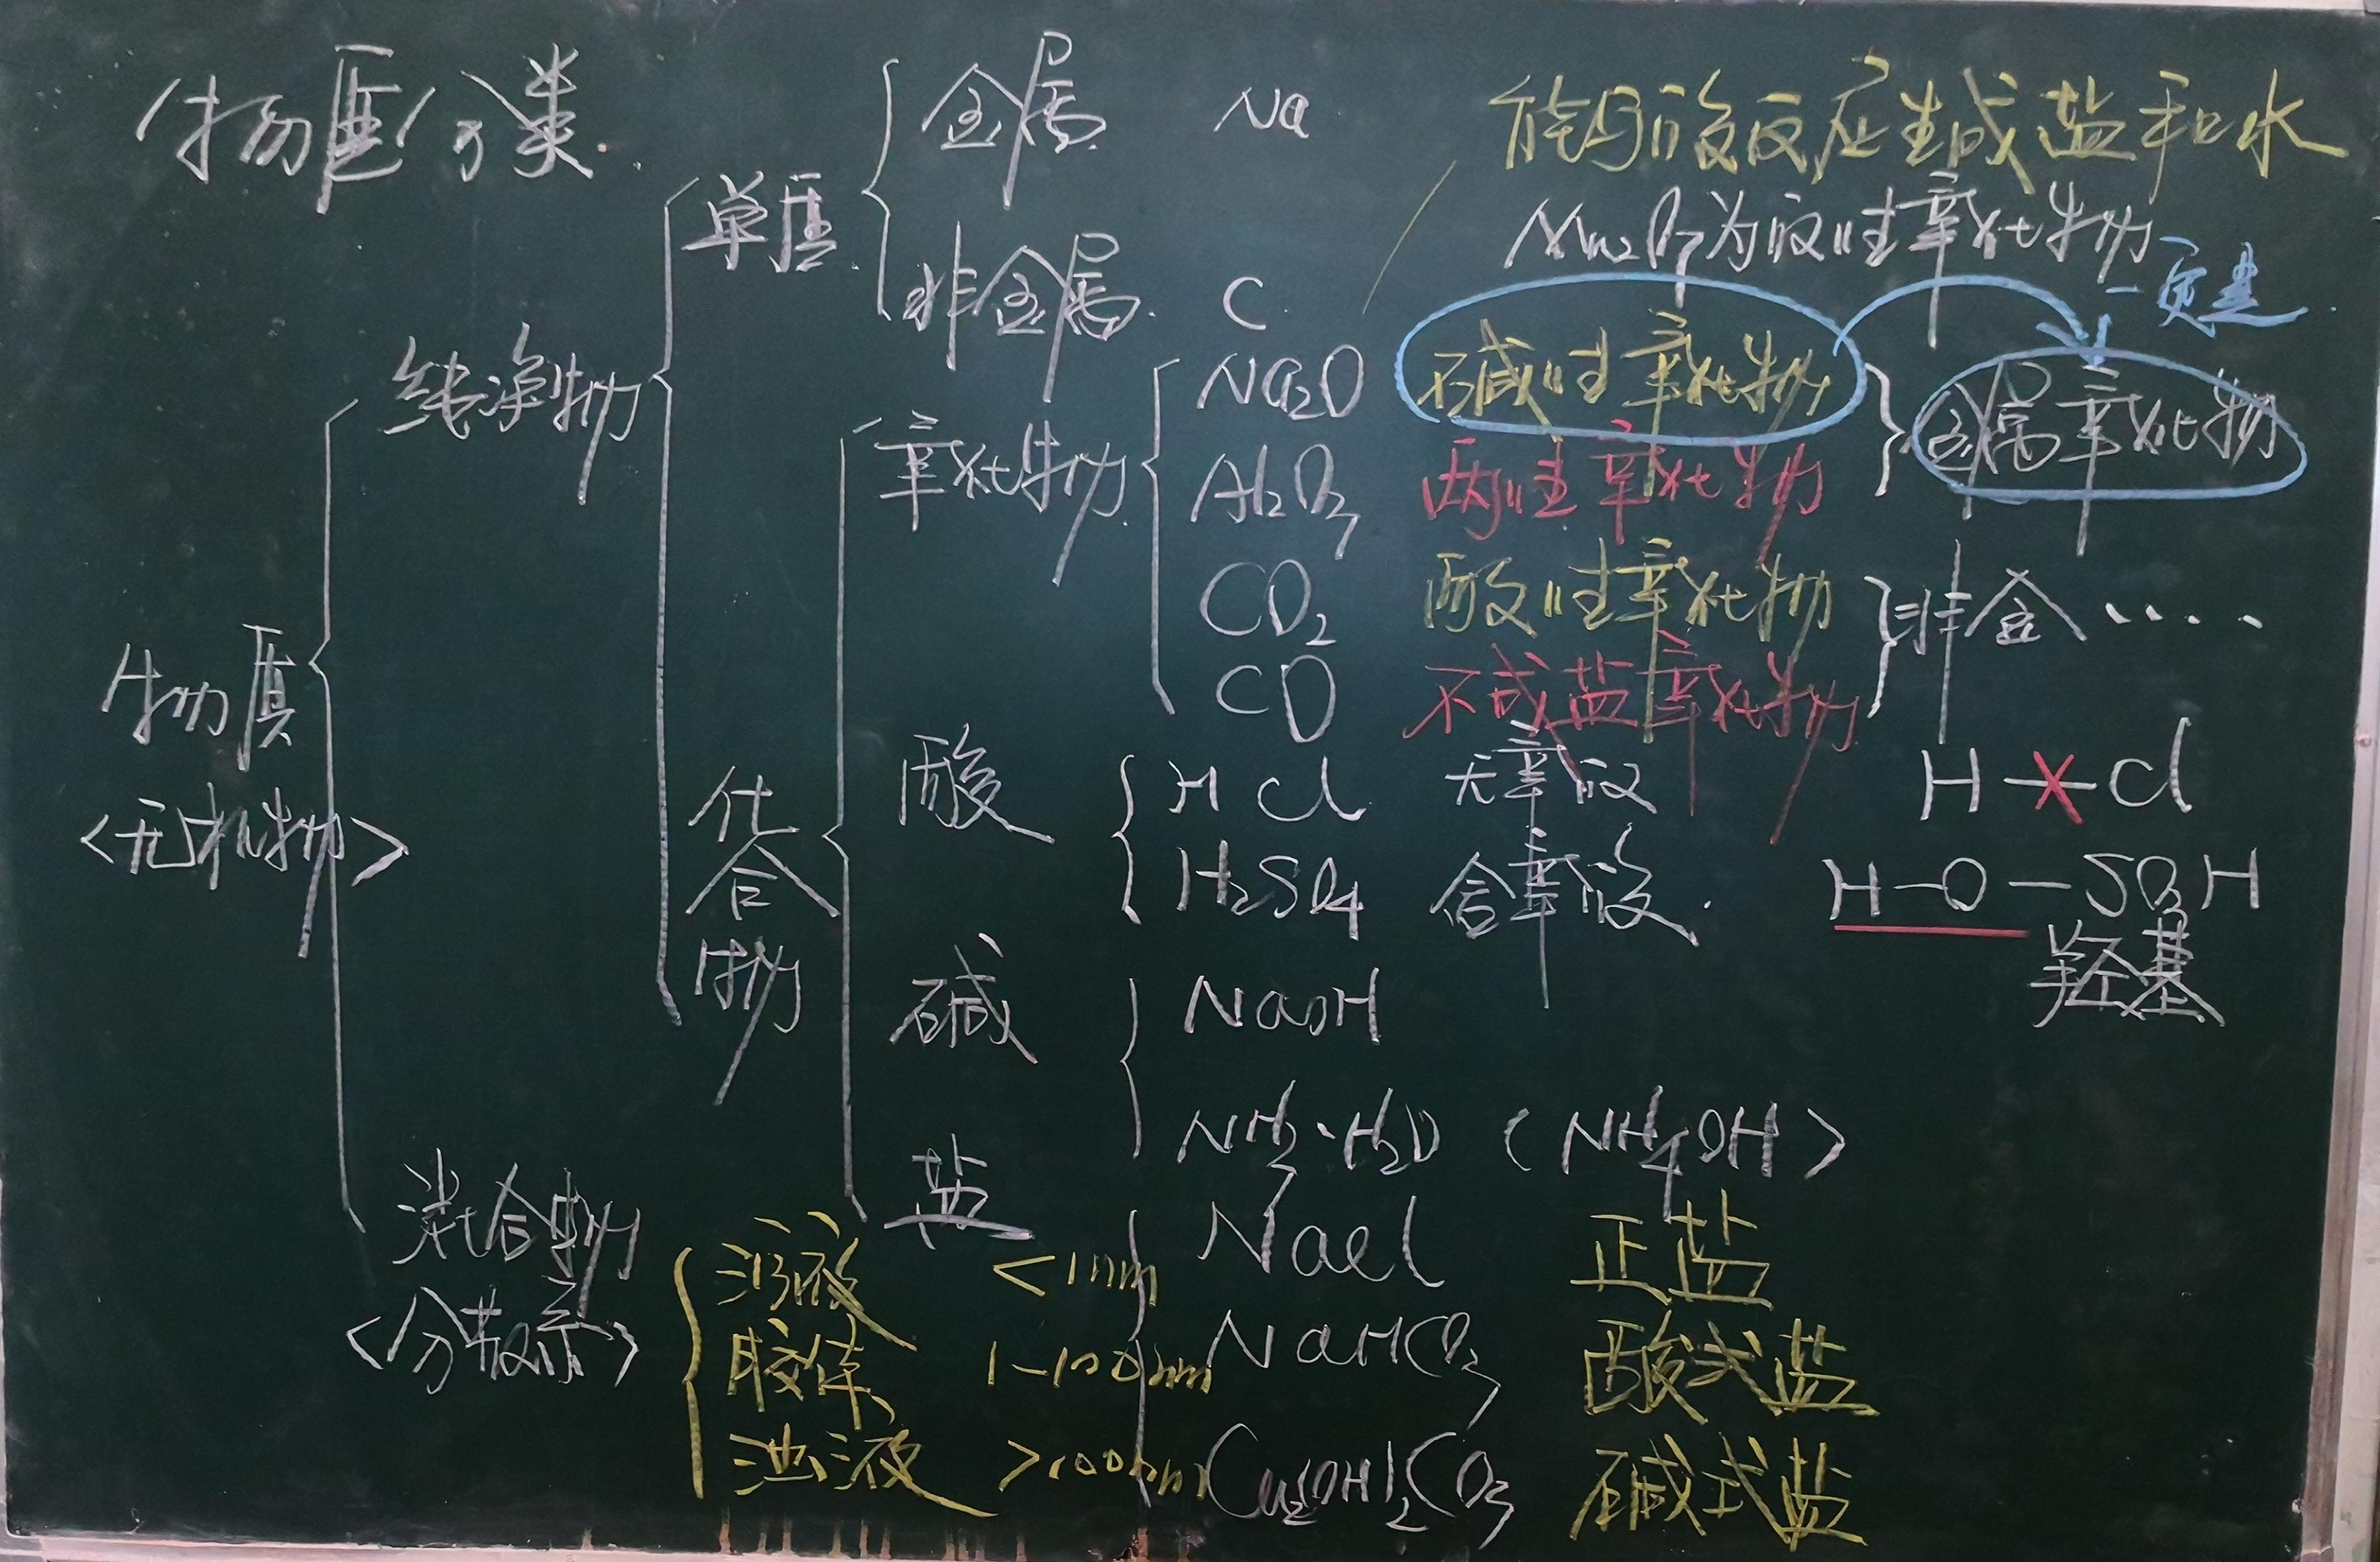 物质分类
金属 Na
能与酸反应生成盐和水
单质
Mn2O7为酸性氧化物
非金属 C
一定是
纯净物
Na2O 碱性氧化物
金属氧化物
氧化物
Al2O3 两性氧化物
CO2 酸性氧化物
非金.....
CO 不成盐氧化物
物质
<无机物>
化合物
酸
HCl 无氧酸 H—Cl
H2SO4 含氧酸. H—O—SO3H
羟基
碱
NaOH
NH3·H2O (NH4OH)
盐
NaCl 正盐
NaHCO3 酸式盐
Cu2(OH)2CO3 碱式盐
混合物
<分散系>
溶液 <1nm
胶体 1-100nm
浊液 >100nm